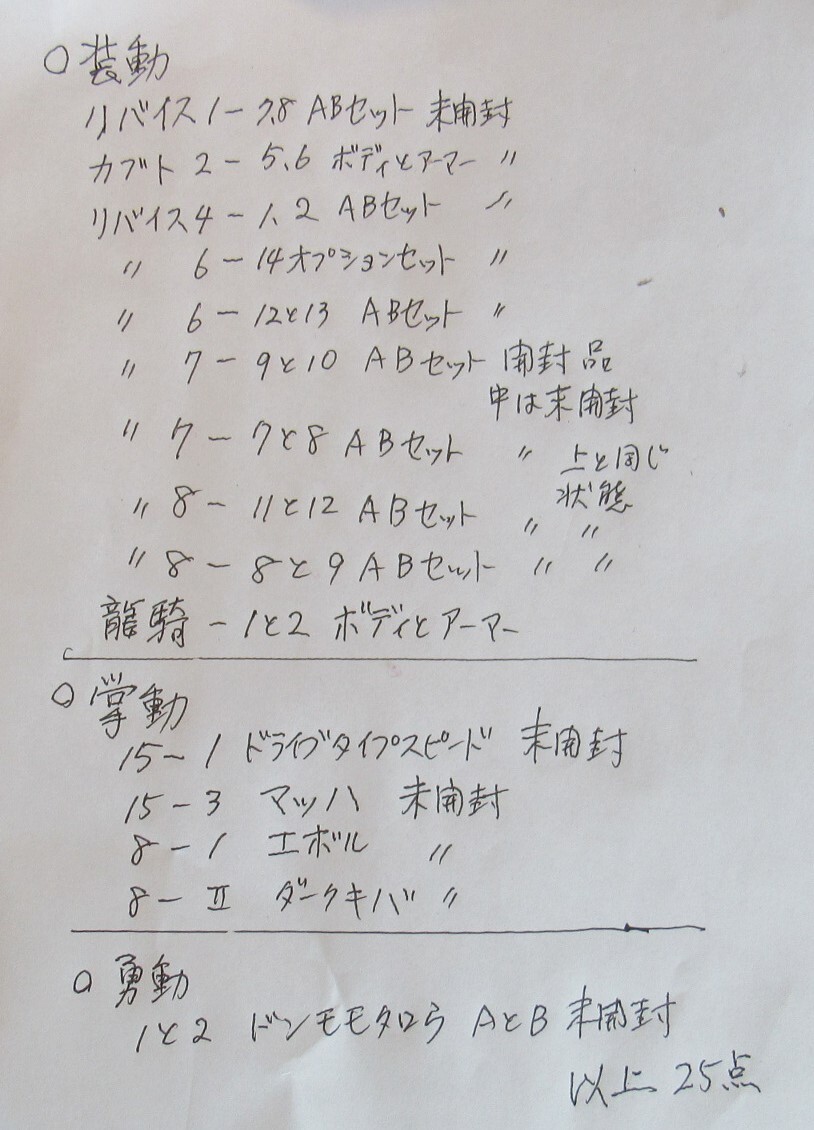 ○装動
リバイス1-7.8 ABセット 未開封
カブト2-5.6 ボディとアーマー 〃
リバイス4-1.2 ABセット 〃
〃 6-14オプションセット 〃
〃 6-12と13 ABセット 〃
〃 7-9と10 ABセット 開封品
中は未開封
〃 7-7と8 ABセット 〃 上と同じ
状態
〃 8-11と12 ABセット 〃 〃
〃 8-8と9 ABセット 〃 〃
龍騎-1と2 ボディとアーマー
○掌動
15-1 ドライブタイプスピード 未開封
15-3 マッハ 未開封
8-1 エボル 〃
8-II ダークキバ 〃
○勇動
1と2 ドンモモタロう AとB 未開封
以上 25点